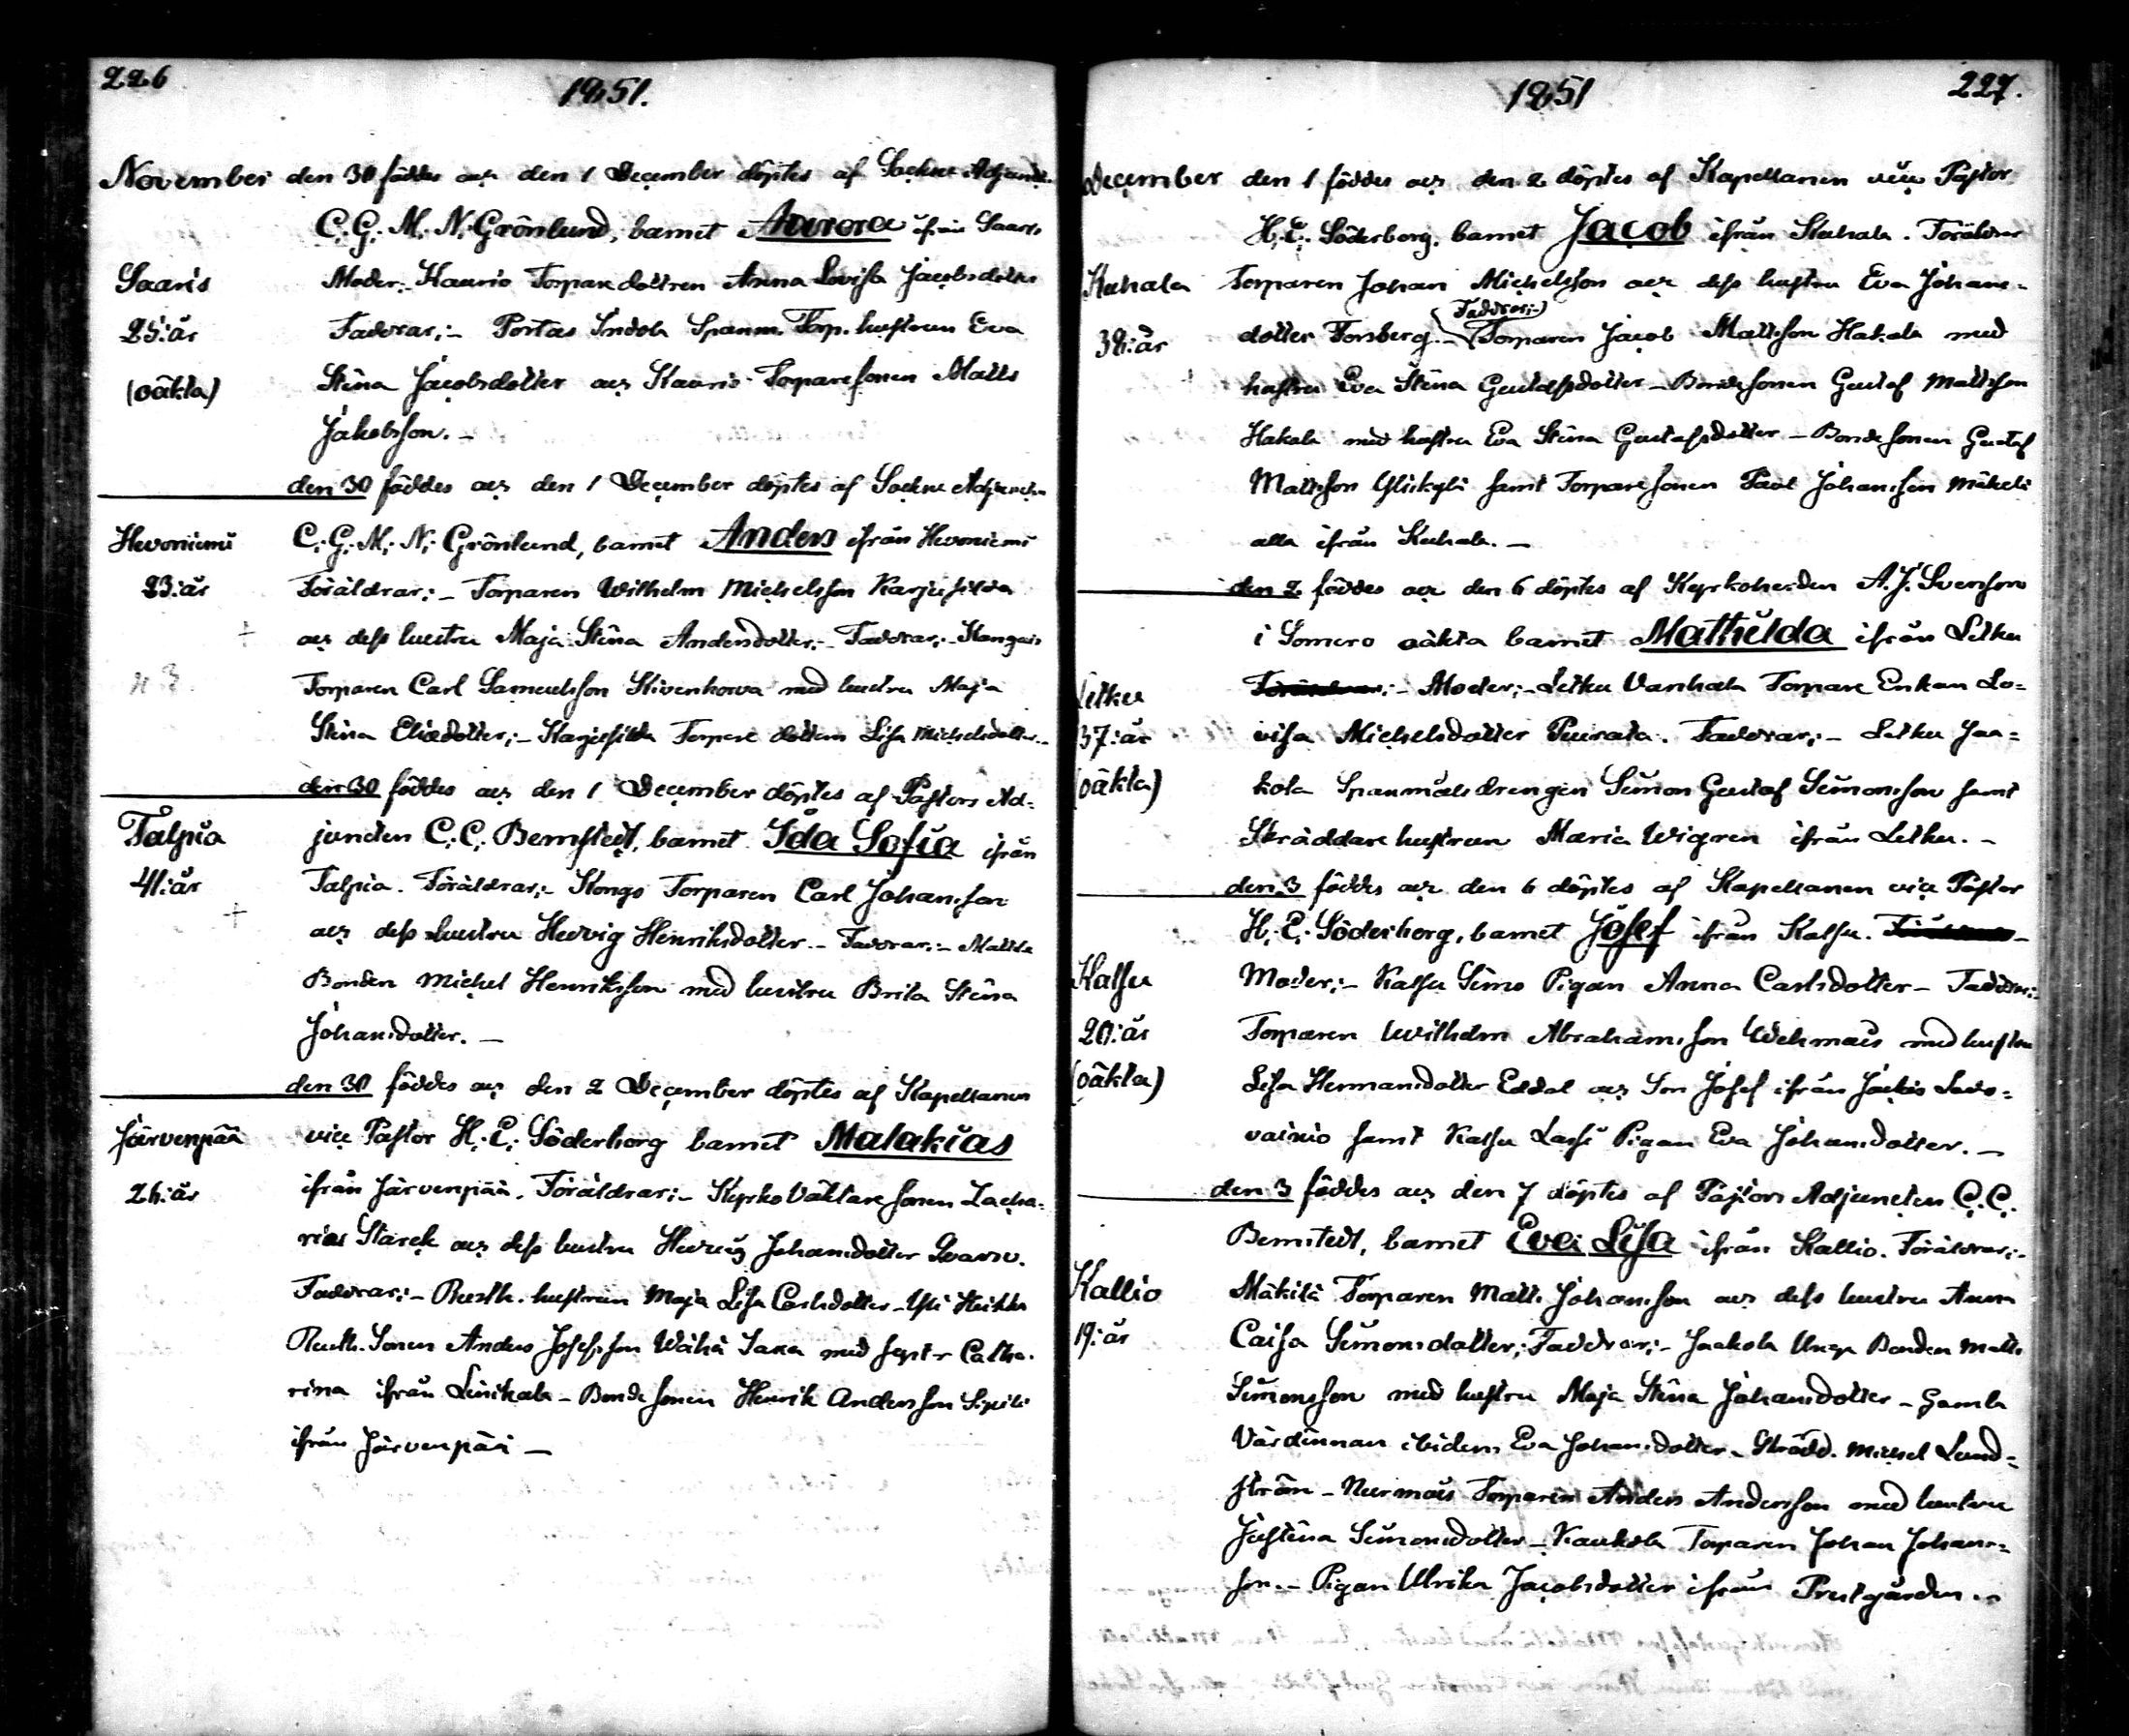 226
1851.
November den 30 föddes och den 1 December döptes af Sockne Adjunct.
C. G. M. N. Grönlund, barnet Aurora ifrån Saaris
Saaris Moder:- Kaurio Torpare dottren Anna Lovisa Jacobsdotter
25:år Faddrar:- Portas Indola Spanm. Torp. hustrun Eva
(oäkta) Stina Jacobsdotter och Kaurio Torparesonen Matts
Jakobsson.-
den 30 föddes och den 1 December döptes af Sockne Adjuncten
Hevoniemi C. G. M. N. Grönlund, barnet Anders ifrån Hevoniemi
23:år Föräldrar:- Torparen Wilhelm Michelsson Karjusilda
och dess hustru Maja Stina Andersdotter:- Faddrar:- Kangais
Torparen Carl Samuelsson Kivenkorva med hustru Maja
Stina Eliedotter;- Karjusilda Torpare dottern Lisa Michelsdotter.-
den 30 föddes och den 1 December döptes af Pastors Ad-
Talpia juncten C. C. Bernstedt, barnet Ida Sofia ifrån
41:år Talpia. Föräldrar:- Kongs Torparen Carl Johansson
och dess hustru Hedvig Henriksdotter.- Faddrar:- Mattila
Bonden Michel Henriksson med hustru Brita Stina
Johansdotter.-
den 30 föddes och den 2 December döptes af Kapellanen
Järvenpää vice Pastor H. E. Söderborg barnet Malakias
26:år ifrån Järvenpää. Föräldrar:- Kyrko Väktare sonen Zacha-
rias Starck och dess hustru Hedvig Johansdotter Qvarn.
Faddrar:- Rusth. hustrun Maja Lisa Carlsdotter - Yli Heikku
Rusth. Sonen Anders Josefsson Wähä Saxa med syster Catha-
rina ifrån Linikala - Bonde sonen Henrik Andersson Sipilä
ifrån Järvenpää -
1851
227.
December den 1 föddes och den 2 döptes af Kapellanen vice Pastor
H. E. Söderborg, barnet Jacob ifrån Kuhala. Föräldrar
Kuhala Torparen Johan Michelsson och dess hustru Eva Johans-
Faddrar:-
38:år dotter Forsberg.- Torparen Jacob Mattsson Hakala med
hustru Eva Stina Gustafsdotter - Bondesonen Gustaf Mattsson
Hakala med hustru Eva Stina Gustafsdotter - Bondesonen Gustaf
Mattsson Ylikylä samt Torparesonen Paul Johansson Mäkelä
alla ifrån Kuhala.-
den 2 föddes och den 6 döptes af Kyrkoherden A. J. Svenson
i Somero oäkta barnet Mathilda ifrån Letku
Letku Föräldrar:- Moder:- Letku Vanhala Torpare Enkan Lo-
37:år visa Michelsdotter Puirata. Faddrar:- Letku Jaa-
(oäkta) kola Spanmåls drengen Simon Gustaf Simonsson samt
Skräddare hustrun Maria Wigren ifrån Letku.-
den 3 föddes och den 6 döptes af Kapellanen vice Pastor
H. E. Söderborg, barnet Josef ifrån Kalsu.
Kalsu Moder:- Kalsu Simo Pigan Anna Carlsdotter - Faddrar:-
20:år Torparen Wilhelm Abrahamsson Wehmais med hustru
(oäkta) Lisa Hermansdotter Eddal och Son Josef ifrån Jackis Lado-
vainio samt Kalsu Lassi Pigan Eva Johansdotter.-
den 3 föddes och den 7 döptes af Pastors Adjuncten C. C.
Bernstedt, barnet Eva Lisa ifrån Kallio. Föräldrar:-
Kallio Mäkilä Torparen Matts Johansson och dess hustru Anna
19:år Caisa Simonsdotter; Faddrar:- Jaakola Unga Bonden Matts
Simonsson med hustru Maja Stina Johansdotter - Gamla
Värdinnan ibidem Eva Johansdotter - Skrädd. Michel Lund-
ström - Nurmais Torparen Anders Andersson med hustru
Justina Simonsdotter - Kaukola Torparen Johan Johans-
son.- Pigan Ulrika Jacobsdotter ifrån Prestgården.-